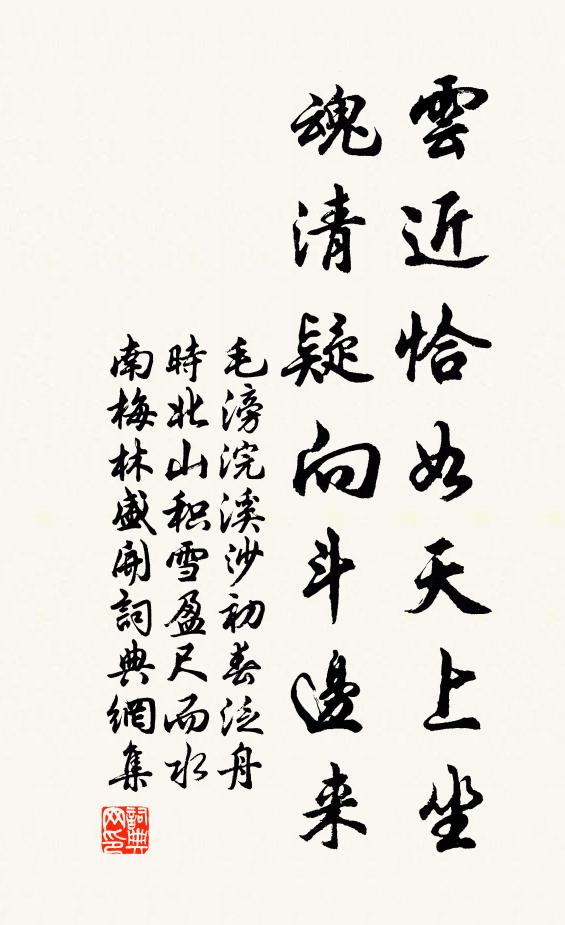 雲近恰如天上坐
魂清疑向斗邊来
毛滂浣溪沙初春泛舟
時北山积雪盈尺而水
南梅林盛開詞典網集
詞典网印